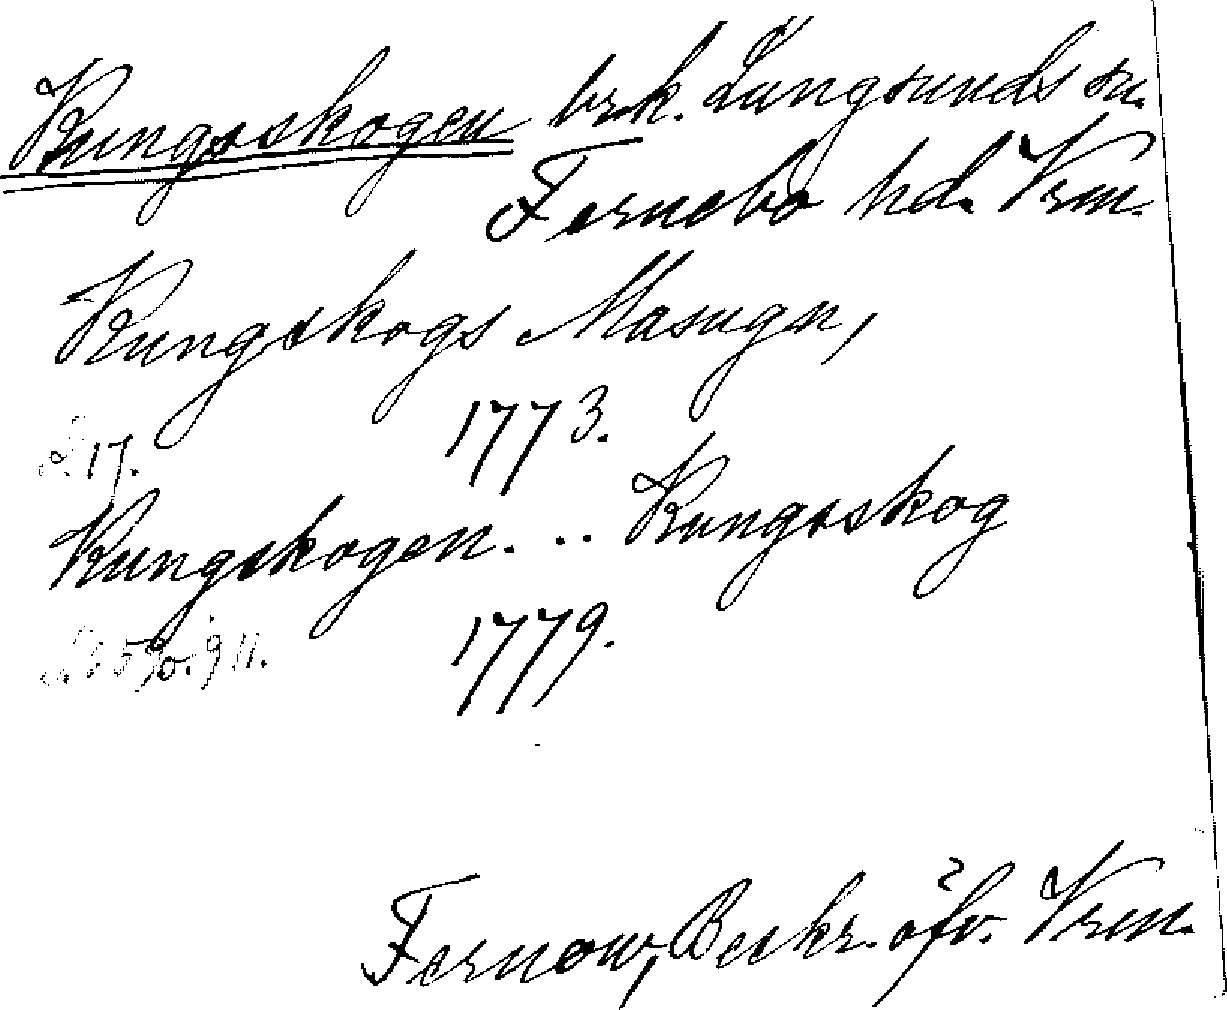 Kungsskogen brk. Lungsunds sn.
Fernebo hd. Vrm.
Kungskogs Masugn,
1773.
s. 17.
Kungskogen... Kungsskog
1779.
s. 590. 911.
Fernow, Beskr. öfv. Vrm.